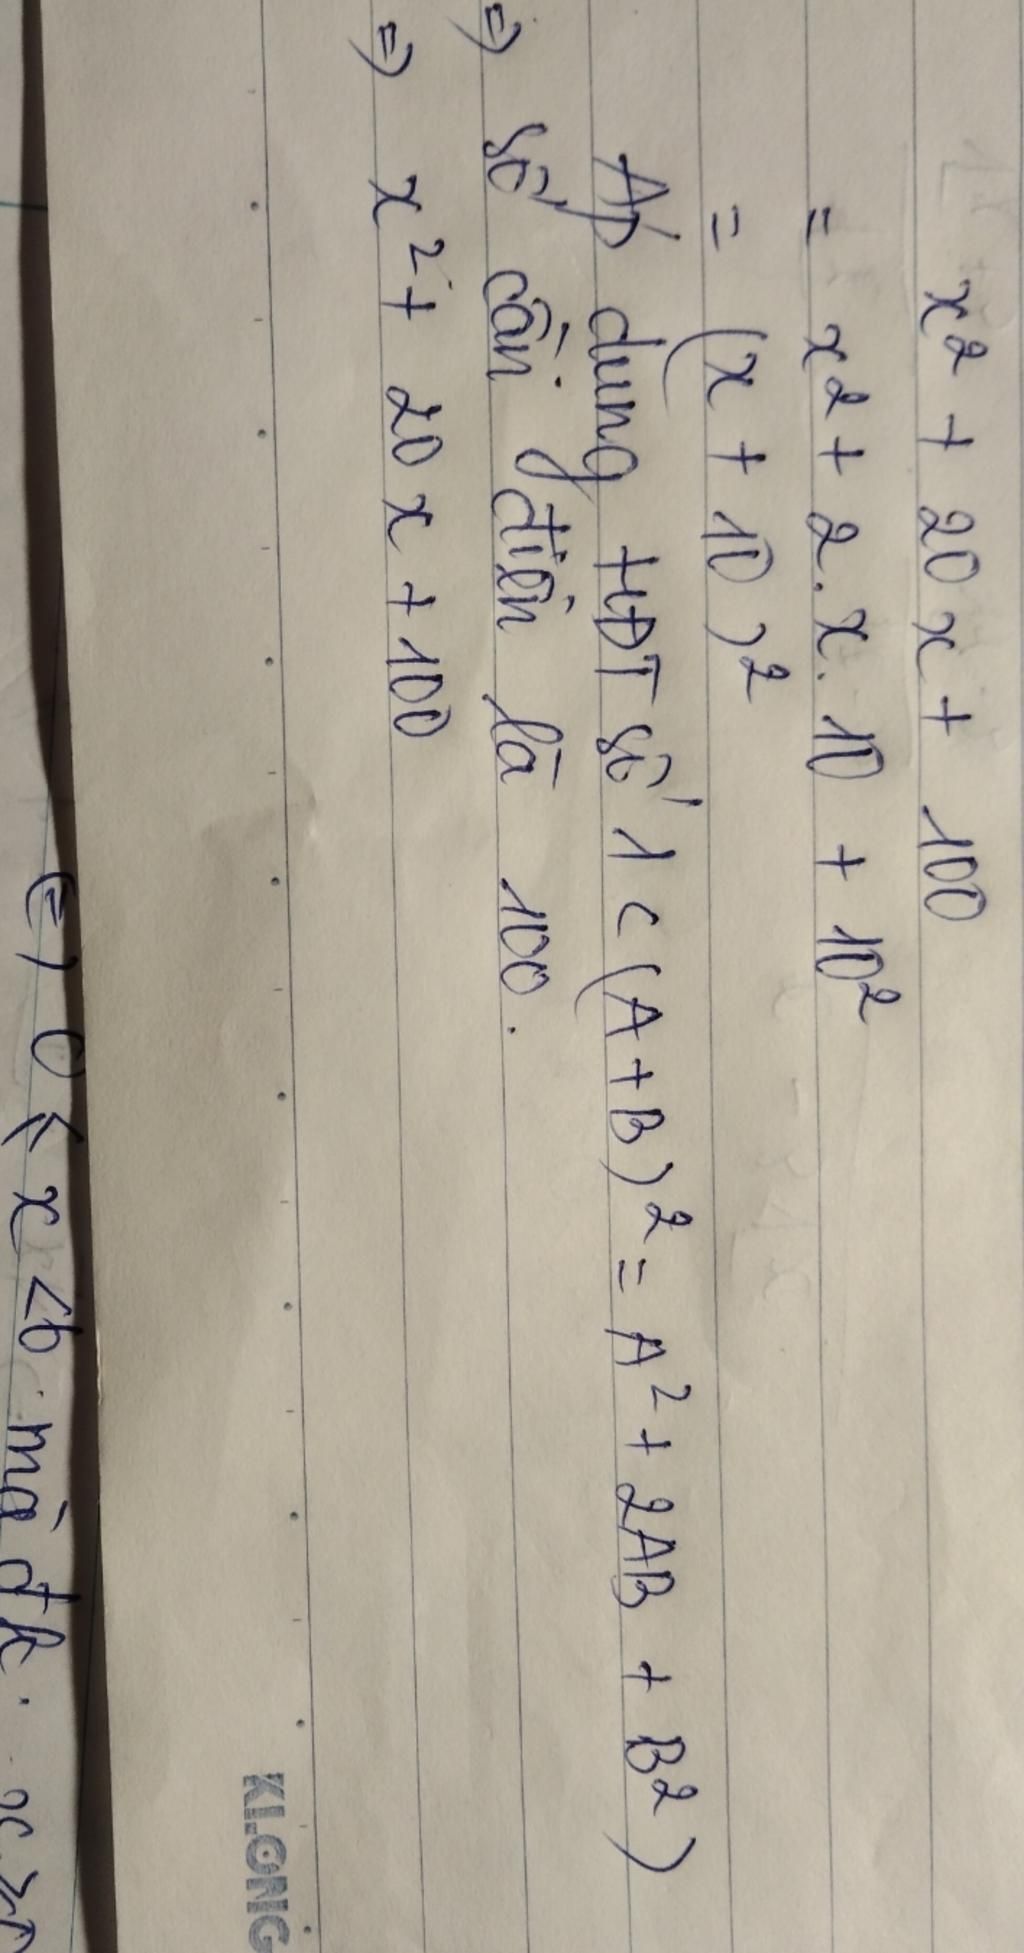 x² + 20x + 100
= x² + 2.x.10 + 10²
= (x + 10)²
Áp dụng HĐT số 1 ( (A+B)² = A² + 2AB + B²)
=> số cần điền là 100.
=> x² + 20x + 100
KLONG
(=) 0 ≤ x < b mà đk. x ≥ 0